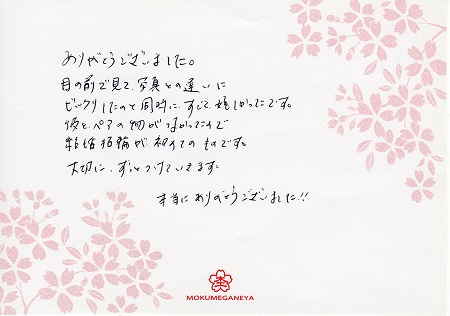 ありがとうございました。
目の前で見て、写真との違いに
ビックリしたのと同時に、すごく嬉しかったです。
彼とペアの物がなかったので
結婚指輪が初めてのものです。
大切に、ずっとつけていきます。
本当にありがとうございました!!
MOKUMEGANEYA